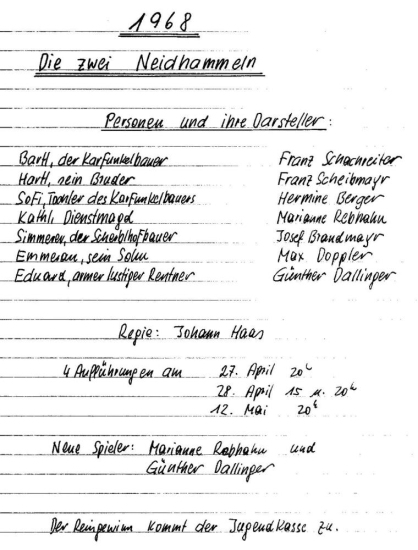 1968
Die zwei Neidhammeln
Personen und ihre Darsteller:
Bartl, der Karfunkelbauer Franz Schachreiter
Hartl, sein Bruder Franz Scheibmayr
Sofi, Tochter des Karfunkelbauers Hermine Berger
Kathli Dienstmagd Marianne Rebhahn
Simmerer, der Scherblhofbauer Josef Brandmayr
Emmeran, sein Sohn Max Doppler
Eduard, armer lustiger Rentner Günther Dallinger
Regie: Johann Haas
4 Aufführungen am 27. April 20h
28. April 15 u. 20h
12. Mai 20h
Neue Spieler: Marianne Rebhahn und
Günther Dallinger
Der Reingewinn kommt der Jugendkasse zu.